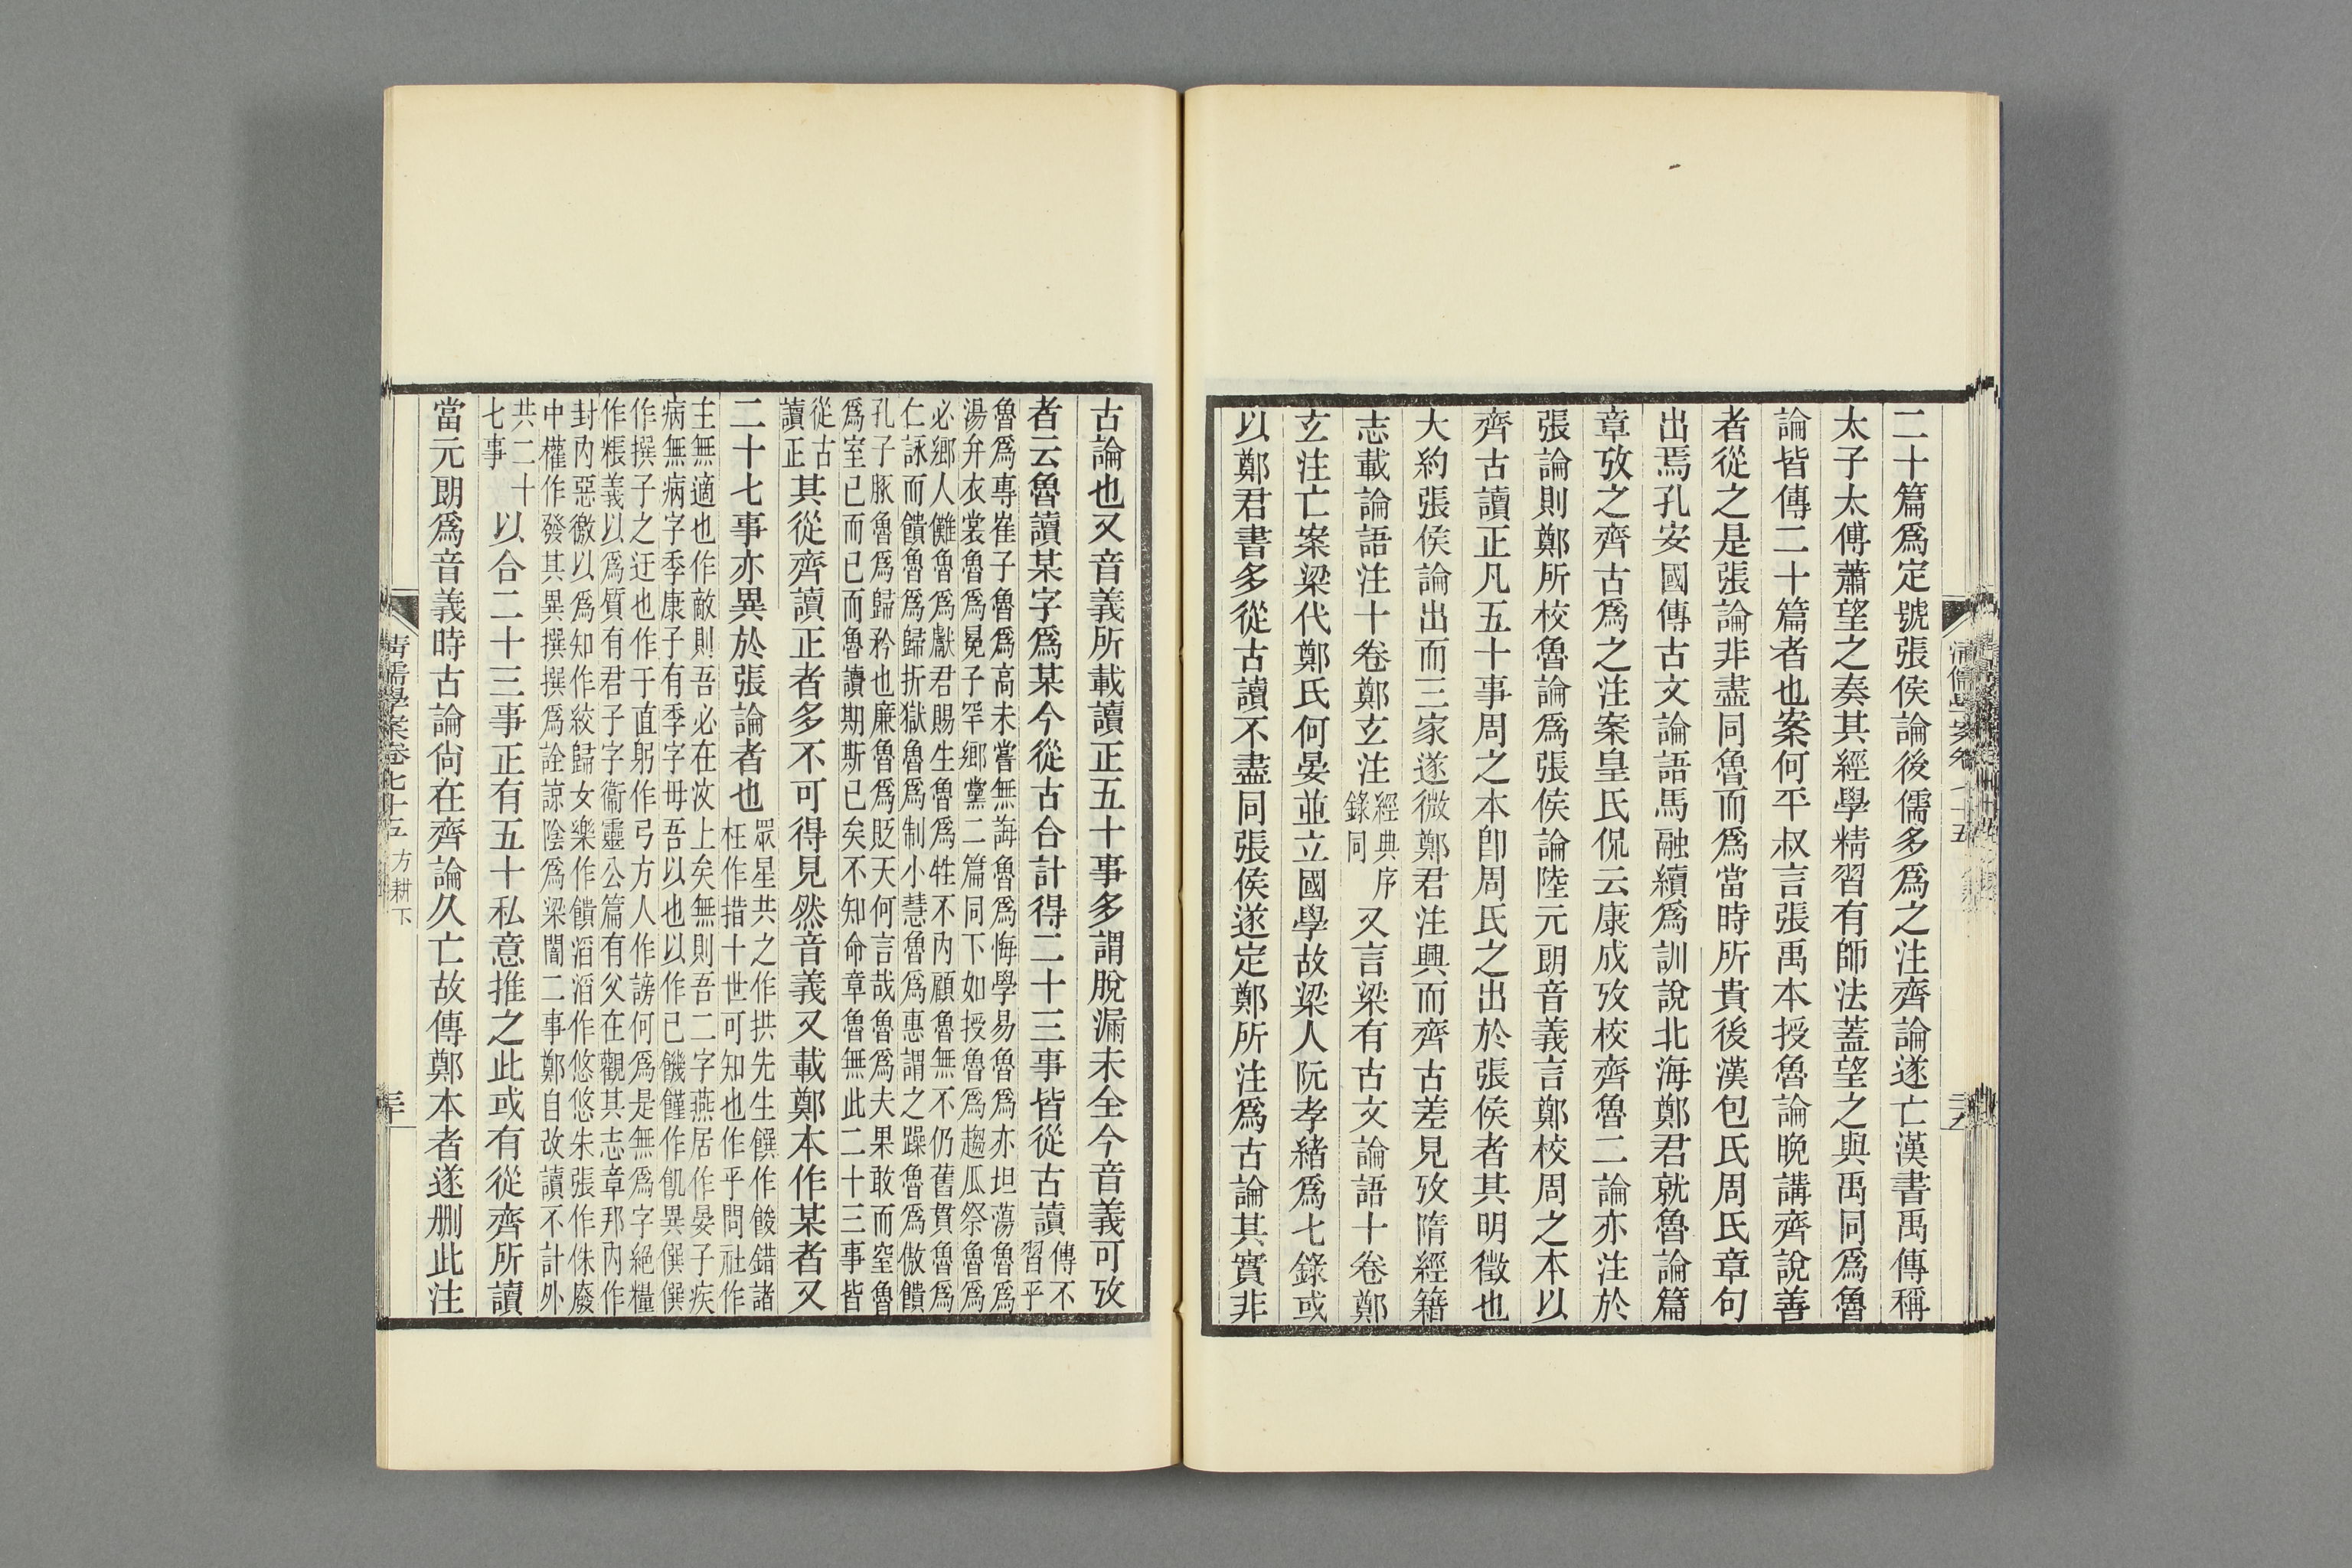 二十篇爲定號張侯論後儒多爲之注齊論遂亡漢書禹傳稱
太子太傅蕭望之奏其經學精習有師法蓋望之與禹同爲魯
論皆傳二十篇者也案何平叔言張禹本授魯論晚講齊說善
者從之是張論非盡同魯而爲當時所貴後漢包氏周氏章句
出焉孔安國傳古文論語馬融續爲訓說北海鄭君就魯論篇
章攷之齊古爲之注案皇氏侃云康成攷校齊魯二論亦注於
張論則鄭所校魯論爲張侯論陸元朗音義言鄭校周之本以
齊古讀正凡五十事周之本卽周氏之出於張侯者其明徵也
大約張侯論出而三家遂微鄭君注興而齊古差見攷隋經籍
志載論語注十卷鄭玄注經典序錄同又言梁有古文論語十卷鄭
玄注亡案梁代鄭氏何晏並立國學故梁人阮孝緒爲七錄或
以鄭君書多從古讀不盡同張侯遂定鄭所注爲古論其實非
古論也又音義所載讀正五十事多謂脫漏未全今音義可攷
者云魯讀某字爲某今從古合計得二十三事皆從古讀傳不習乎
魯爲專崔子魯爲高未嘗無誨魯爲悔學易魯爲亦坦蕩魯爲
湯弁衣裳魯爲冕子罕鄉黨二篇同下如授魯爲趨瓜祭魯爲
必鄉人儺魯爲獻君賜生魯爲牲不內顧魯無不仍舊貫魯爲
仁詠而饋魯爲歸折獄魯爲制小慧魯爲惠謂之躁魯爲傲饋
孔子豚魯爲歸矜也廉魯爲貶天何言哉魯爲夫果敢而窒魯
爲室已而已而魯讀期斯已矣不知命章魯無此二十三事皆
從古讀正其從齊讀正者多不可得見然音義又載鄭本作某者又
二十七事亦異於張論者也眾星共之作拱先生饌作餕錯諸枉作措十世可知也作乎問社作
主無適也作敵則吾必在汶上矣無則吾二字燕居作晏子疾
病無病字季康子有季字毋吾以也以作已饑饉作飢異僎僎
作撰子之迂也作于直躬作弓方人作謗何爲是無爲字絕糧
作粻義以爲質有君子字衞靈公篇有父在觀其志章邦內作
封內惡徼以爲知作絞歸女樂作饋滔滔作悠悠朱張作侏廢
中權作發其異撰撰爲詮諒陰爲梁闇二事鄭自改讀不計外
共二十七事以合二十三事正有五十私意推之此或有從齊所讀
當元朗爲音義時古論尙在齊論久亡故傳鄭本者遂刪此注
清儒學案卷七十五 方耕下 三十